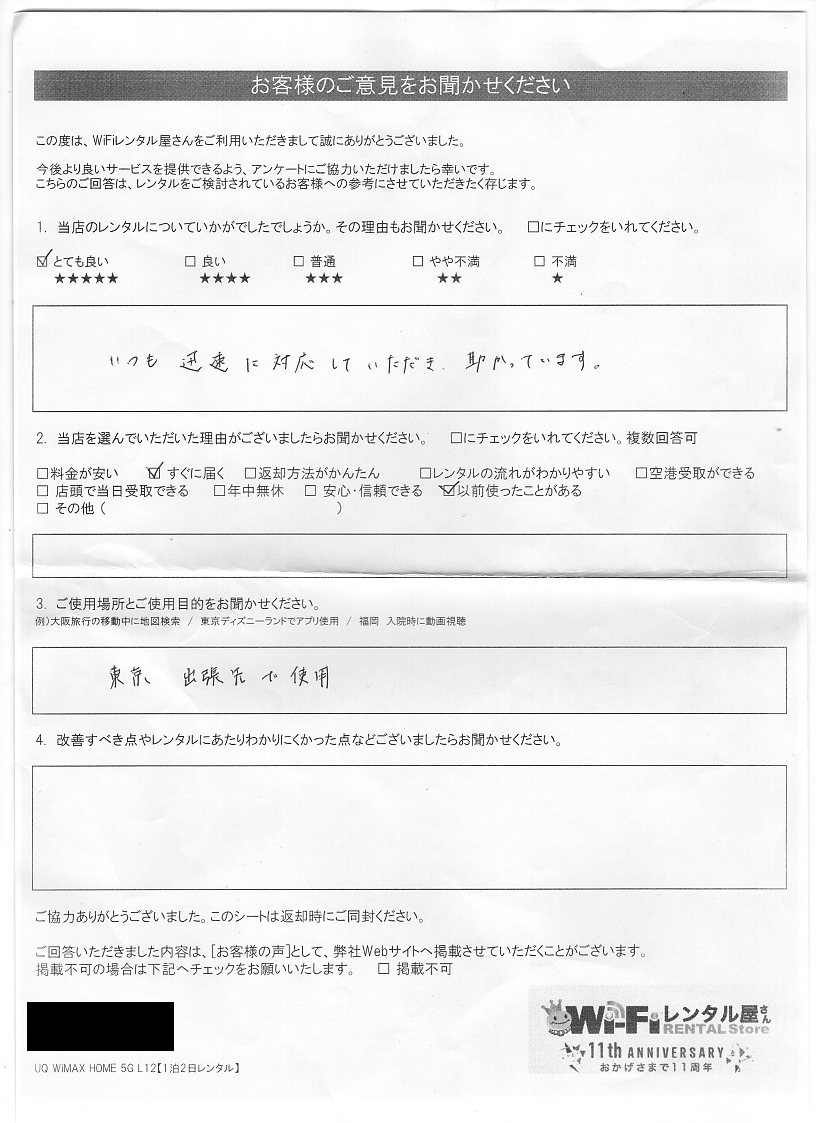 お客様のご意見をお聞かせください
この度は、WiFiレンタル屋さんをご利用いただきまして誠にありがとうございました。
今後より良いサービスを提供できるよう、アンケートにご協力いただけましたら幸いです。
こちらのご回答は、レンタルをご検討されているお客様への参考にさせていただきたく存じます。
1. 当店のレンタルについていかがでしたでしょうか。その理由もお聞かせください。 □にチェックをいれてください。
☑とても良い □ 良い □ 普通 □ やや不満 □ 不満
★★★★★ ★★★★ ★★★ ★★ ★
いつも 迅速に対応していただき、助かっています。
2. 当店を選んでいただいた理由がございましたらお聞かせください。 □にチェックをいれてください。複数回答可
□料金が安い ☑すぐに届く □返却方法がかんたん □レンタルの流れがわかりやすい □空港受取ができる
□ 店頭で当日受取できる □年中無休 □ 安心・信頼できる ☑以前使ったことがある
□ その他 ( )
3. ご使用場所とご使用目的をお聞かせください。
例)大阪旅行の移動中に地図検索 / 東京ディズニーランドでアプリ使用 / 福岡 入院時に動画視聴
東京、出張先で使用
4. 改善すべき点やレンタルにあたりわかりにくかった点などございましたらお聞かせください。
ご協力ありがとうございました。このシートは返却時にご同封ください。
ご回答いただきました内容は、[お客様の声]として、弊社Webサイトへ掲載させていただくことがございます。
掲載不可の場合は下記へチェックをお願いいたします。 □ 掲載不可
Wi-Fiレンタル屋さん
RENTAL Store
11th ANNIVERSARY
おかげさまで11周年
UQ WiMAX HOME 5G L12【1泊2日レンタル】